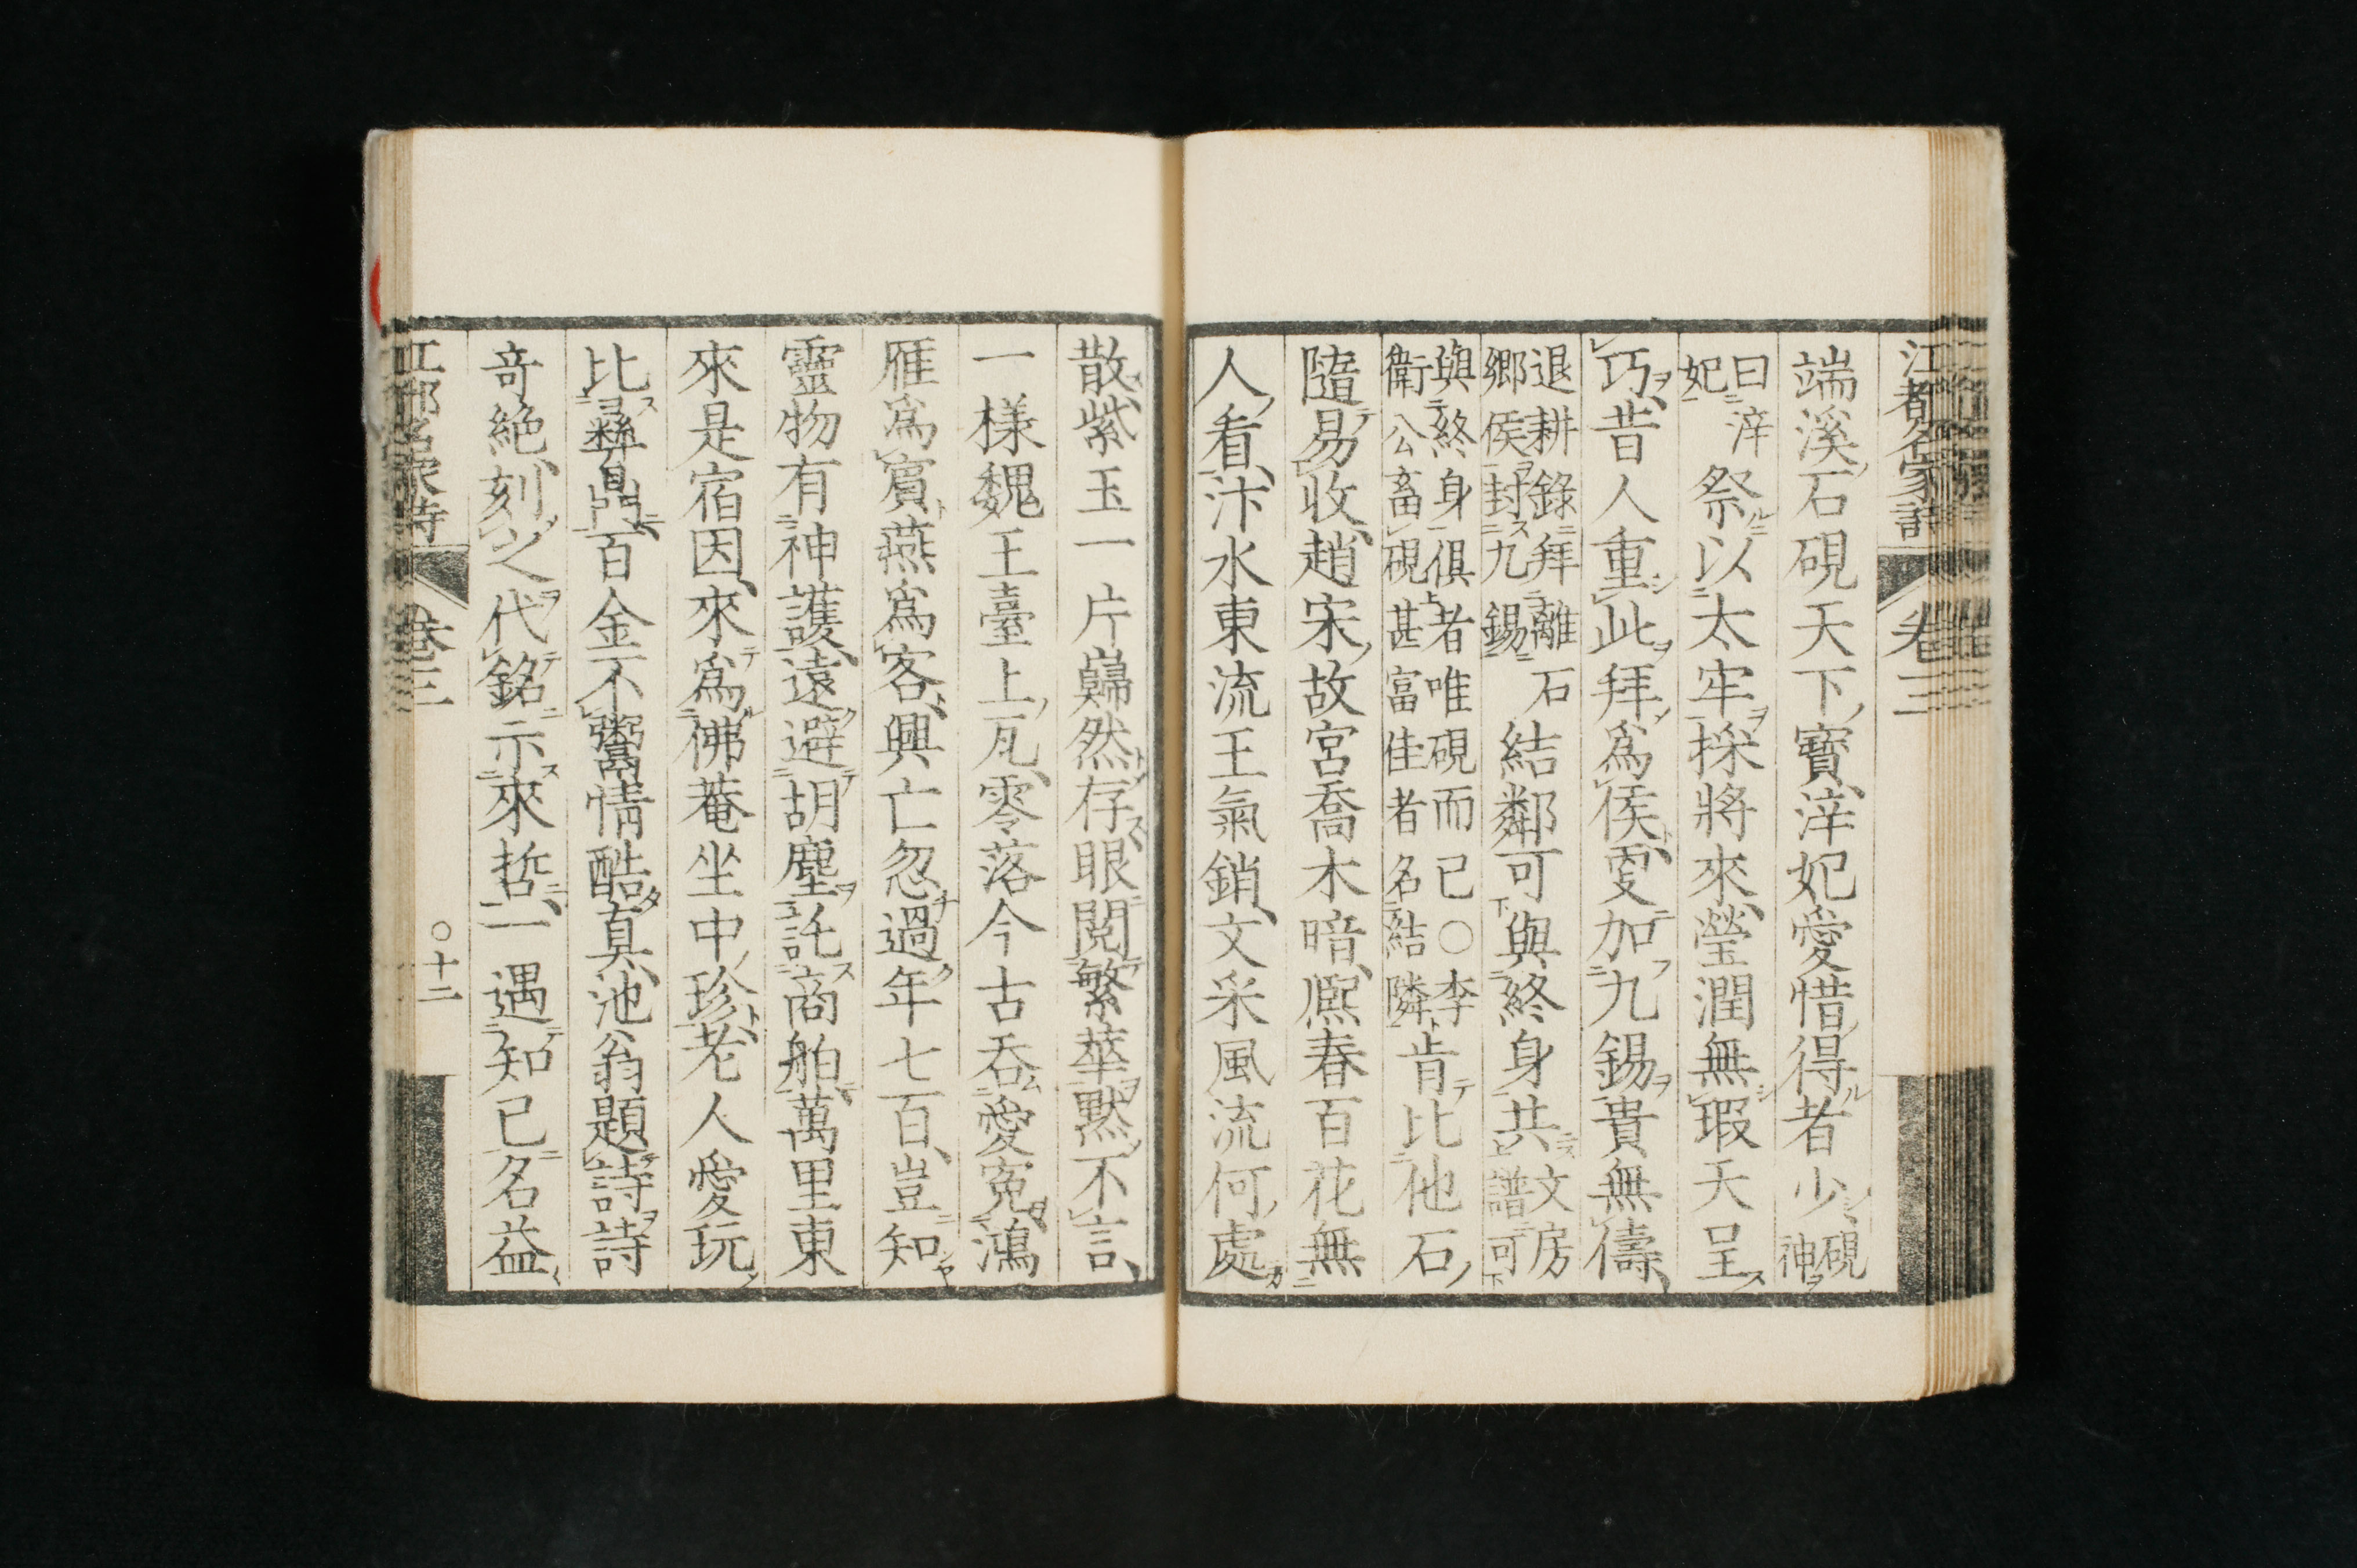 江都名家詩 卷三
端溪石硯天下寶滓妃愛惜得者少硯神
曰滓妃祭以太牢採將來瑩潤無瑕天呈
巧昔人重此拜爲侯更加九錫貴無儔
退耕錄拜離石鄉侯封九錫結鄰可與終身共文房譜可
與終身俱者唯硯而已○李衛公畜硯甚富佳者名結隣肯比他石
隨易收趙宋故宮喬木暗熈春百花無
人看汴水東流王氣銷文采風流何處
散紫玉一片巋然存眼閲繁華默不言
一樣魏王臺上瓦零落今古呑愛冤鴻
雁爲賓燕爲客興亡忽過年七百豈知
靈物有神護遠避胡塵託商舶萬里東
來是宿因來爲佛菴坐中珍老人愛玩
比彝鼎百金不鬻情酷真池翁題詩詩
竒絶刻之代銘示來哲一遇知己名益
江都名家詩 卷三 ○十二